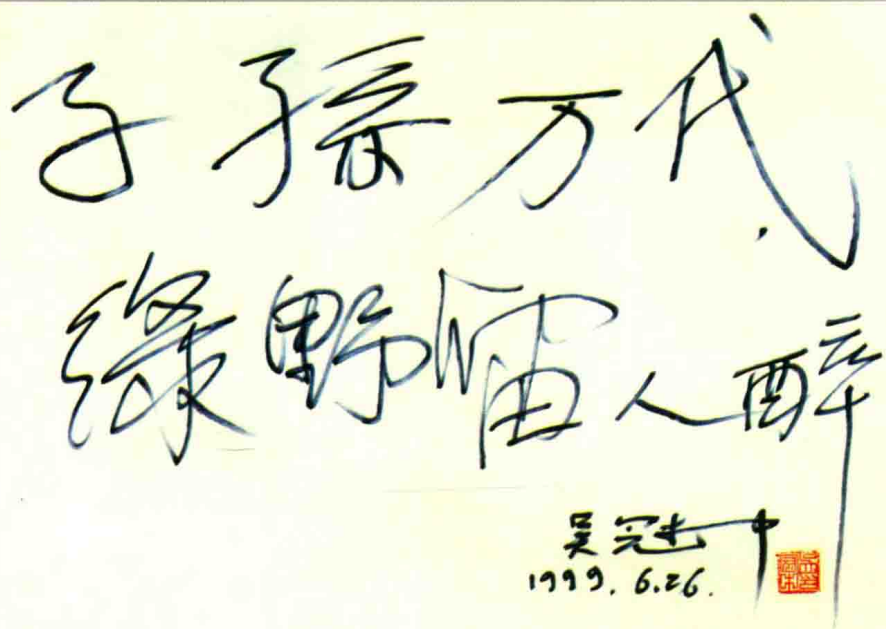 子孫万代
綠野留人醉
吴冠中
1999.6.26.